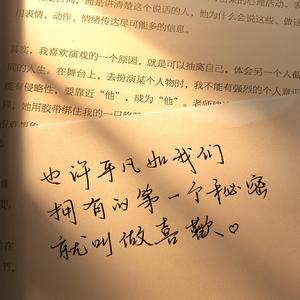 而是讲清楚这个说话的人，他为什么会说这些、做这
用表情、动作、情绪传达尽可能多的信息。
其实，我喜欢演戏的一个原因，就是可以抽离自己，体会另一个人截
同的人生。在舞台上，去扮演某个人物时，我不能有强烈的个人意识
能有侵略性，要靠近“他”，成为“他”。老师
她用胶带绑住我的一口
也许平凡如我们
拥有的第一个秘密
就叫做喜歡、♡